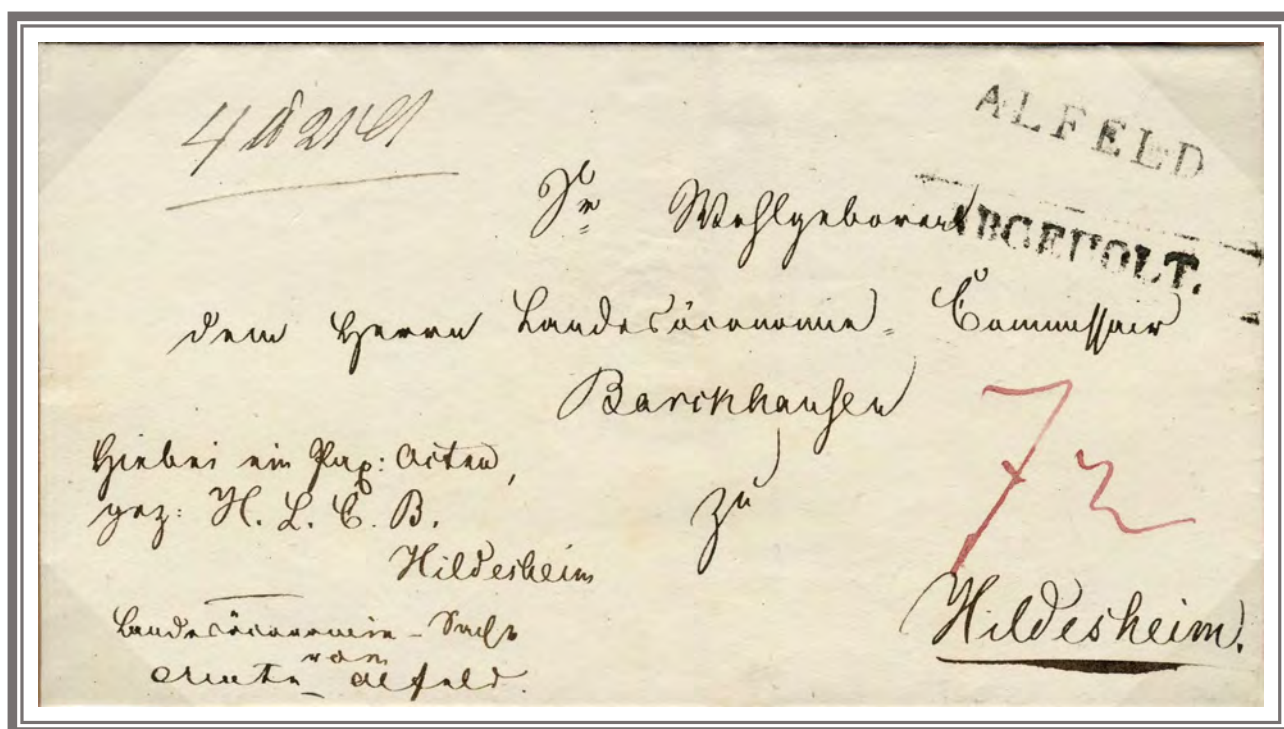 ALFELD
ABGEHOLT.
Sr Wohlgeboren
dem Herrn Landesöconomie-Commissair
Barckhausen
zu
Hildesheim.
Hiebei ein Pap: Acten,
gez: H. L. C. B.
Hildesheim
Landesöconomie-Sache
vom
Amte Alfeld.